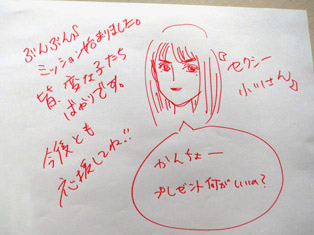 ぶんぶんが
ミッション始まりました。
皆 変な子たち
ばかりです。
今後とも
応援してね!!
『セクシー
小川さん』
かんちょー
プレゼント何がいいの?